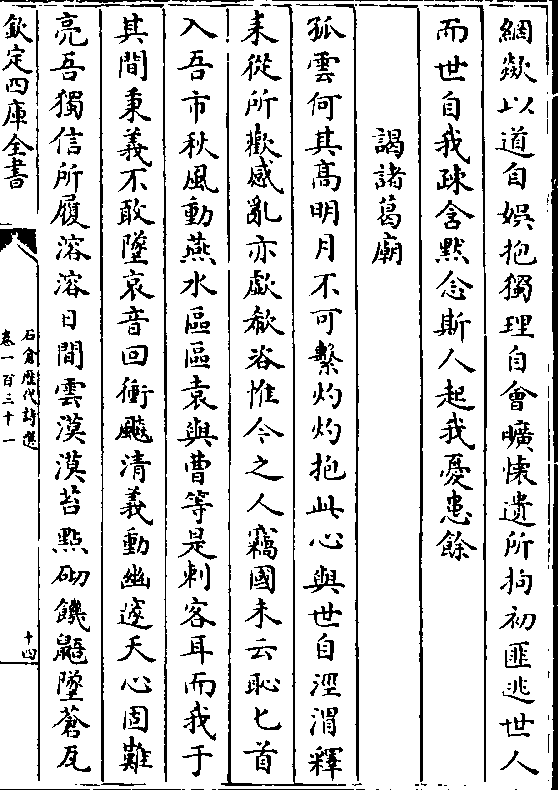 網歘以道自娯抱獨理自會曠懐遺所拘初匪逃世人
而世自我疎含黙念斯人起我憂患餘
謁諸葛廟
孤雲何其髙明月不可繫灼灼抱此心與世自涇渭釋
耒從所歡感亂亦歔欷浴惟今之人竊國未云恥匕首
入吾市秋風動燕水區區袁與曹等是刺客耳而我于
其間秉義不敢墜哀音回衝飈清義動幽邃天心固難
亮吾獨信所履溶溶日間雲漠漠苔㸃砌饑鼯墜蒼瓦
欽定四庫全書
石倉歴代詩選
卷一百三十一
十四